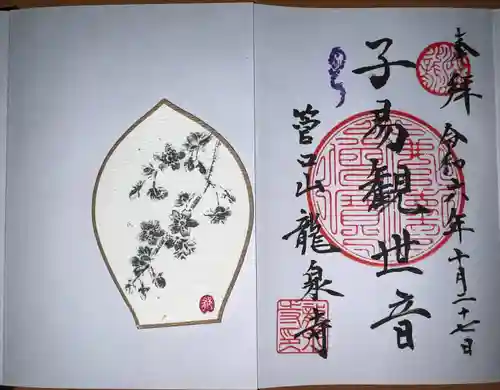 奉拝 令和六年十月二十七日
子易観世音
菅口山 龍泉寺